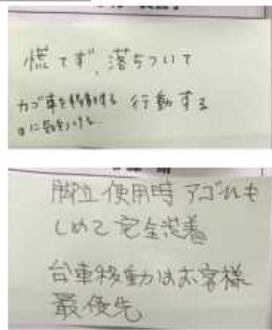 慌てず、落ちついて
カゴ車を移動する 行動する
時に気をつける
脚立使用時アゴひも
しめて完全装着
台車移動はお客様
最優先